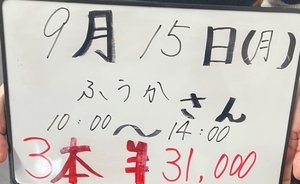 9月 15日(月)
ふうかさん
10:00〜14:00
3本 ¥31,000